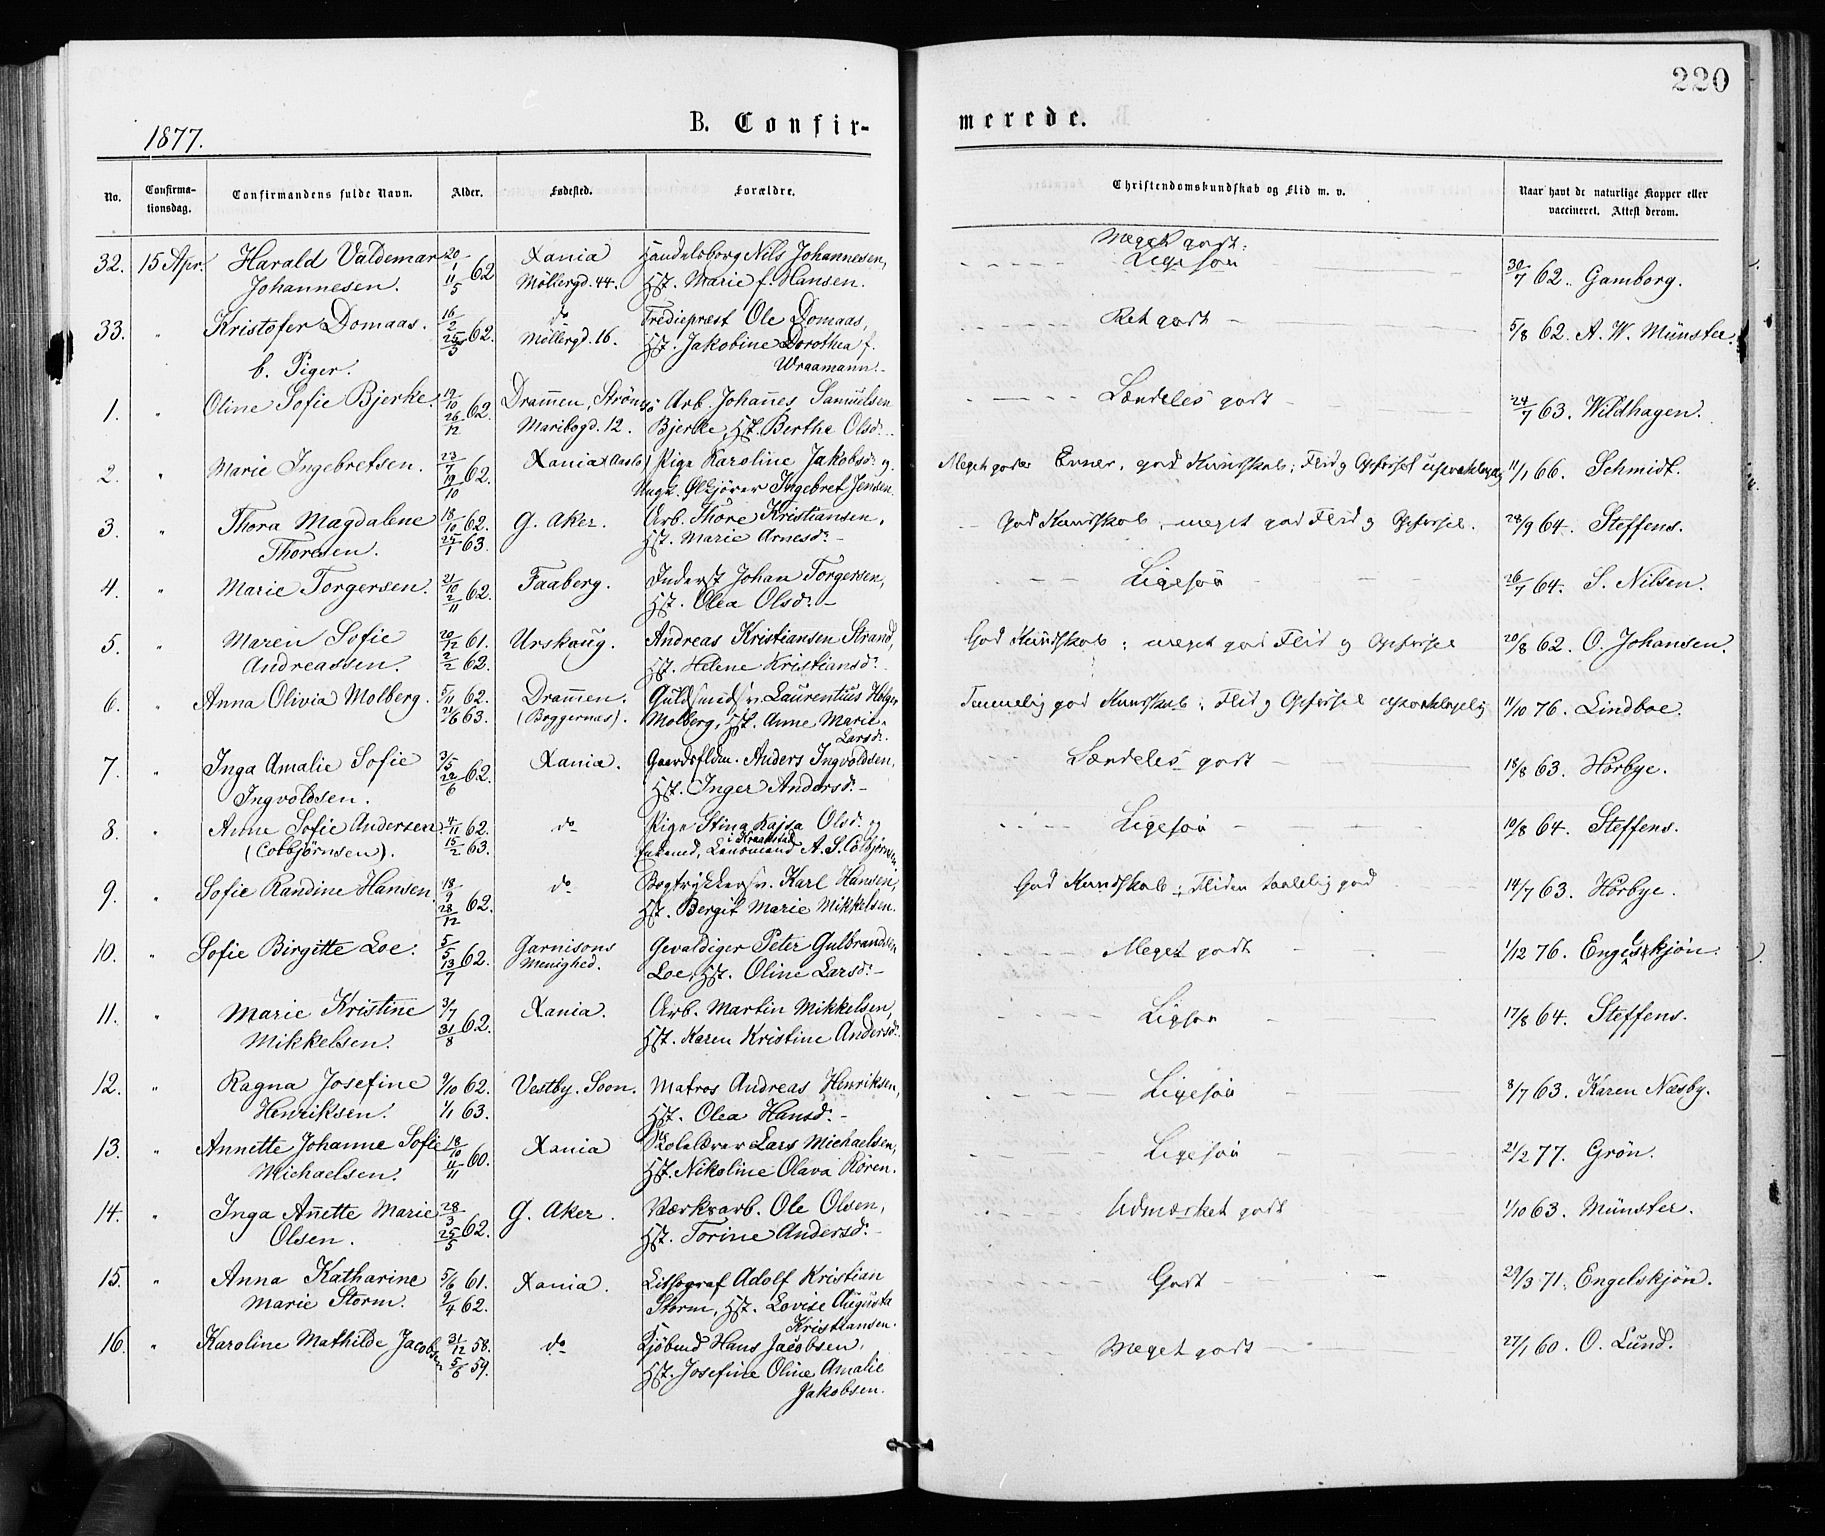 220
1877.
B. Confir-
merede.
No.
Confirma-
tionsdag.
Confirmandens fulde Navn.
Alder.
Fødested.
Forældre.
Christendomskundskab og Flid m. v.
Naar havt de naturlige Kopper eller
vaccineret. Attest derom.
32. 15 Apr. Harald Valdemar 20/1 62 Xania Handelsborg Nils Johannesen, Meget godt.
Johannesen. 11/5 Møllergd. 44. Hst. Marie f. Hansen. Ligesaa 30/7 62. Gamborg.
33. " Kristofer Domaas. 16/2 62. do Trediepræst Ole Domaas, Ret godt 5/8 62. A. W. Münster.
25/5 Møllergd. 16. Hst. Jakobine Dorothea f.
b. Piger. Wraamann.
1. " Oline Sofie Bjerke. 19/10 62. Drammen, Strømsø Arb. Johannes Samuelsen Særdeles godt 24/7 63. Wildhagen.
26/12 Maribogd. 12. Bjerke, Hst. Berthe Olsdr.
2. " Marie Ingebretsen. 23/7 62. Xania (Aaslo) Pige Karoline Jakobsdr. og Meget gode Evner, god Kundskab; Flid og Opførsel upaaklagelig 11/1 66. Schmidt.
19/10 Ungk. Ølkjører Ingebret Jensen.
3. " Thora Magdalene 18/10 62. G. Aker. Arb. Thore Kristiansen, God Kundskab, meget god Flid og Opførsel. 28/9 64. Steffens.
Thoresen. 25/1 63. Hst. Marie Arnesdr.
4. " Marie Torgersen. 21/10 62. Faaberg. Inderst Johan Torgersen, Ligesaa 26/7 64. S. Nilsen.
2/11 Hst. Olea Olsdr.
5. " Maren Sofie 20/12 61. Urskaug. Andreas Kristiansen Strand, God Kundskab; meget god Flid og Opførsel 20/8 62. O. Johansen.
Andreassen. 2/2 62. Hst. Helene Kristiansdr.
6. " Anna Olivia Molberg. 5/11 62. Drammen. Guldsmedsv. Laurentius Holger Temmelig god Kundskab; Flid og Opførsel upaaklagelig 11/10 76. Lindboe.
21/6 63. (Bragernæs). Molberg, Hst. Anne Marie
Larsdr.
7. " Inga Amalie Sofie 3/5 62. Xania. Gaardsfldm. Anders Ingvoldsen, Særdeles godt 18/8 63. Hørbye.
Ingvoldsen. 22/6 Hst. Inger Andersdr.
8. " Anne Sofie Andersen 4/11 62. do Pige Stina Kajsa Olsdr. og Ligesaa 10/8 64. Steffens.
i Kraakstad
(Colbjørnsen). 15/2 63. Enkemd, Lensmand A. S. Colbjørnsen
9. " Sofie Randine Hansen. 18/9 62. do Bogtrykkersv. Karl Hansen, God Kundskab; Fliden taalelig god 14/7 63. Hørbye.
28/12 Hst. Bergit Marie Mikkelsen.
10. " Sofie Birgitte Loe. 5/5 62. Garnisons Gevaldiger Peter Gulbrandsen Meget godt 1/12 76. Engelskjøn.
13/7 Menighed. Loe, Hst. Oline Larsdr.
11. " Marie Kristine 3/7 62. Xania. Arb. Martin Mikkelsen, Ligesaa 17/8 64. Steffens.
Mikkelsen. 31/8 Hst. Karen Kristine Andersdr.
12. " Ragna Josefine 9/10 62. Vestby. Soon. Matros Andreas Henriksen, Ligesaa 8/7 63. Karen Næsby.
Henriksen. 1/1 63. Hst. Olea Hansdr.
13. " Annette Johanne Sofie 18/10 60. Xania Skolelærer Lars Michaelsen, Ligesaa 21/2 77. Grøn.
Michaelsen. 11/11 Hst. Nikoline Olava Røren.
14. " Inga Anette Marie 28/3 62. G. Aker. Værksarb. Ole Olsen, Udmærket godt 1/10 63. Münster.
Olsen. 25/5 Hst. Torine Andersdr.
15. " Anna Katharine 5/6 61. Xania. Lithograf Adolf Kristian Godt 29/3 71. Engelskjøn.
Marie Storm. 9/4 62. Storm, Hst. Lovise Augusta
Kristiansen.
16. " Karoline Mathilde Jacobsen 31/12 58. do Kjøbmd Hans Jacobsen, Meget godt 27/1 60. O. Lund.
5/6 59. Hst. Josefine Oline Amalie
Jakobsen.